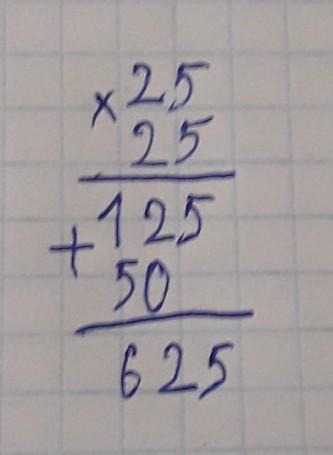 × 25
25
125
+
50
625